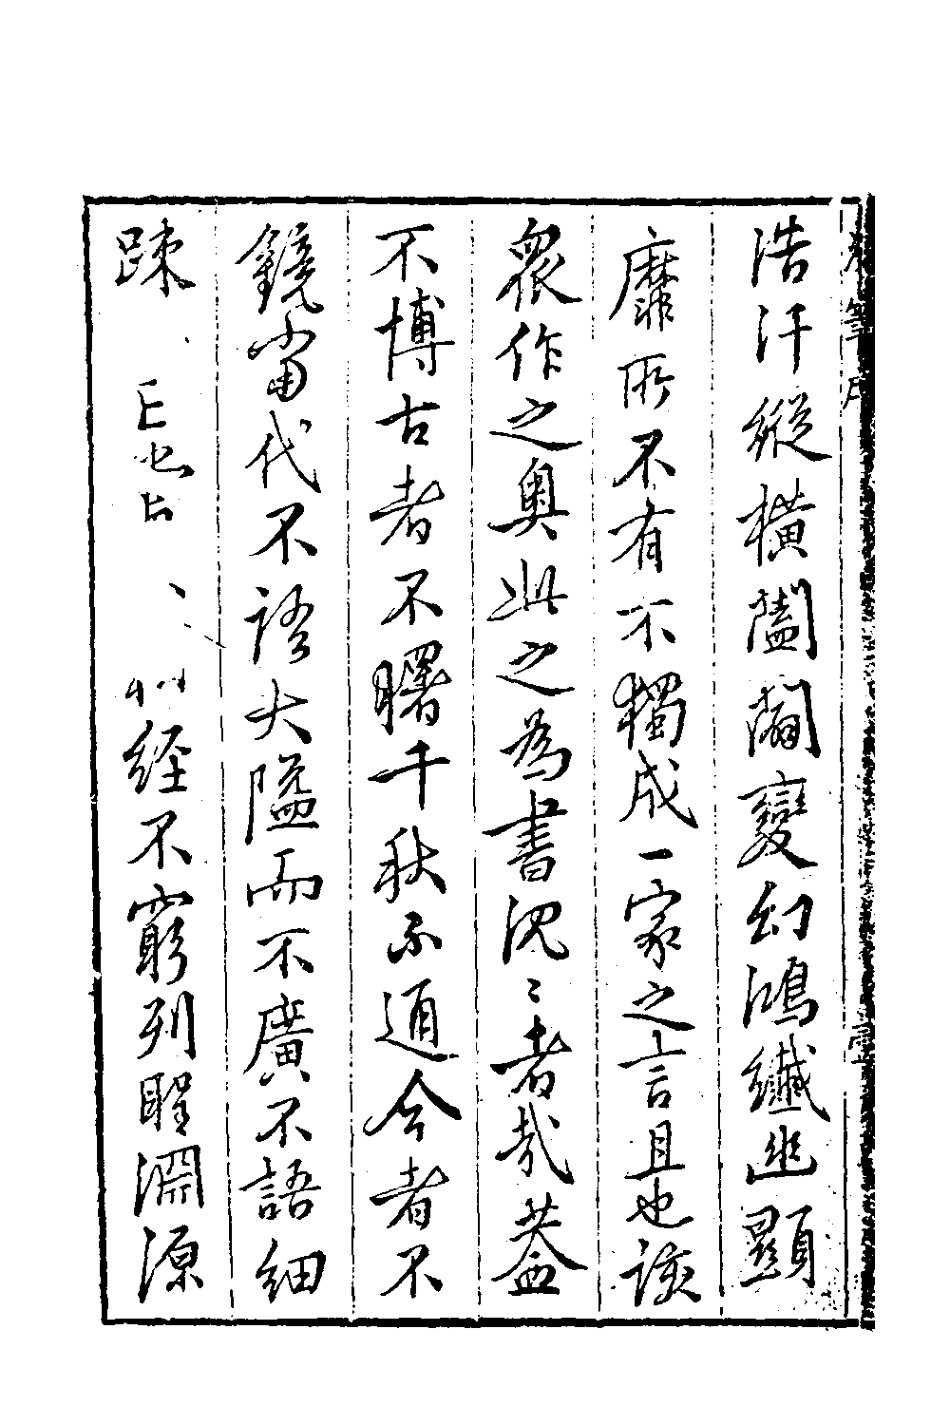 浩汗縱橫闔闢變幻鴻纖幽顯
靡所不有不獨成一家之言且也該
衆作之奧此之為書況〻者哉蓋
不博古者不曙千秋不通今者不
鏡當代不語大隘而不廣不語細
踈
經不窮列聖淵源